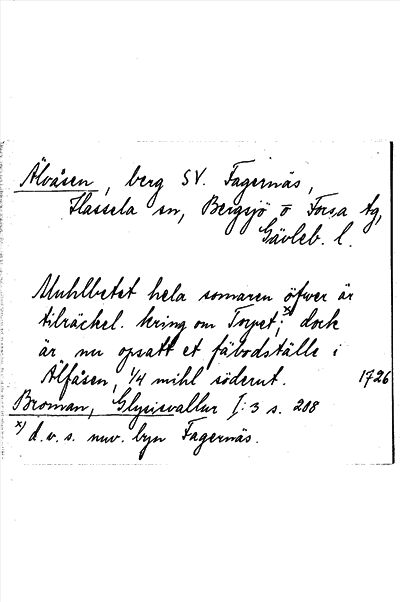 Älvåsen, berg SV. Fagernäs,
Hassela sn, Bergsjö o Forsa tg,
Gävleb. l.
Muhlbetet hela somaren öfwer är
tilräckel. kring om Torpet;x) dock
är nu opsatt et fäbodställe i
Älfåsen, 1/4 mihl söderut. 1726
Broman, Glysisvallur I:3 s. 208
x) d.v.s. nuv. byn Fagernäs.